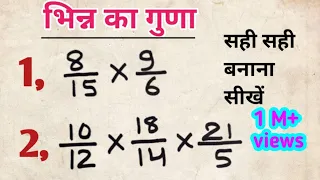 भिन्न का गुणा
सही सही
बनाना
सीखें
1, 8/15 × 9/6
2, 10/12 × 18/14 × 21/5
1 M+
views